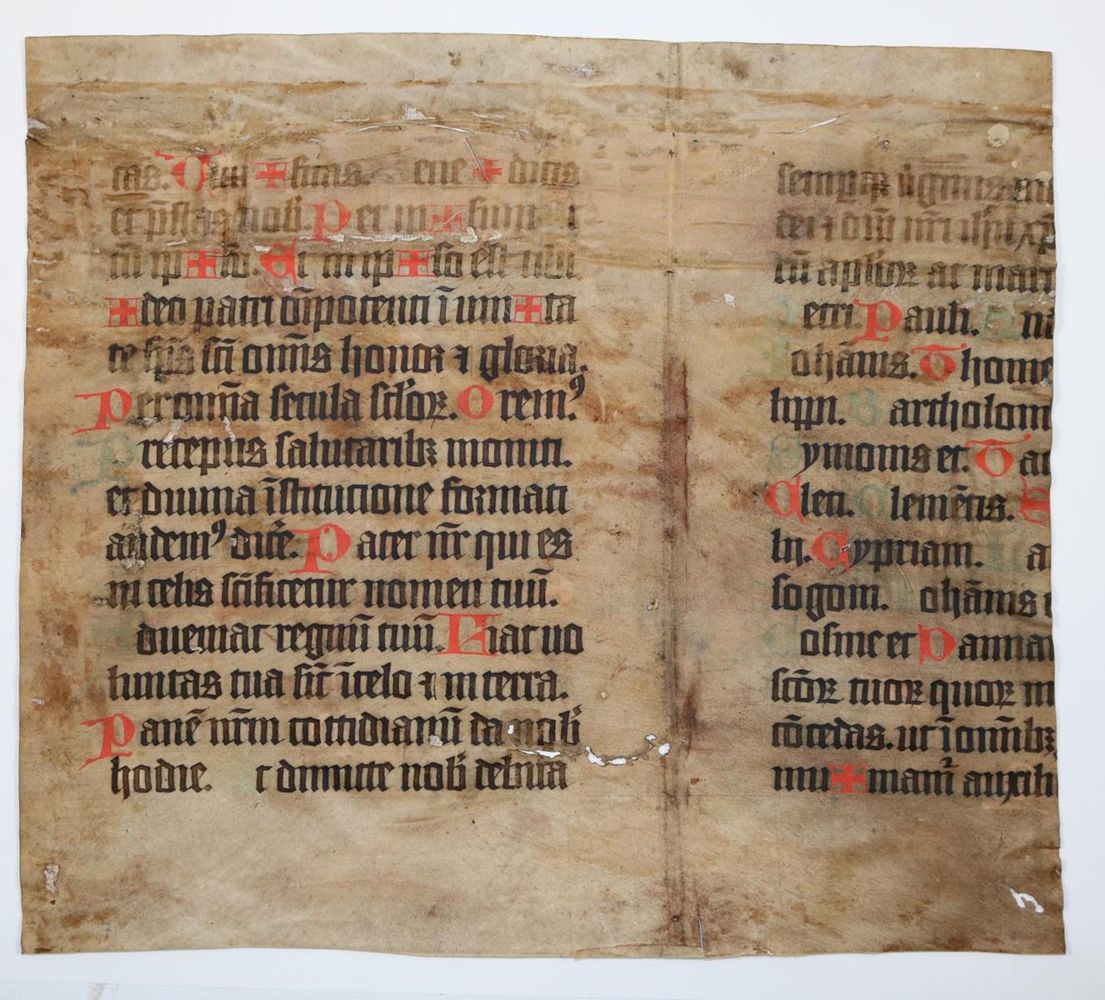 cas. Uiui ✠ ficas. ene ✠ dicis
et p̄stas nob̄. Per ip ✠ sum et
cū ip ✠ so. Et in ip ✠ so est tibi
✠ deo patri oīpotenti ī uni ✠ ta
te sp̄s sc̄i omīs honor ⁊ gloria.
Per om̄ia secula sc̄loꝝ. Oremꝰ
receptis salutaribꝫ moniti.
et diuina īstitutione formati
audemꝰ dic̄e. Pater nr̄ qui es
in celis sc̄ificetur nomen tuū.
dueniat regnū tuū. Fiat uo
luntas tua sic̄ ī celo ⁊ in terra.
Panē nr̄m cottidianū da nob̄
hodie. t dimitte nob̄ debita
semꝑqꝫ ūginis
dei ⁊ dn̄i nr̄i ih̄u xp̄i
tū apl̄oꝝ ac mart
etri Pauli. n
ohānis. Thome
lippi. artholom
ymonis et. Tat
Cleti. lemētis. S
lij. Cypriani. a
sogoni. ohānis
osme et Damia
sc̄oꝝ tuoꝝ quoꝝ m
cōcedas. ut ī om̄ibꝫ
mu ✠ niamur auxili